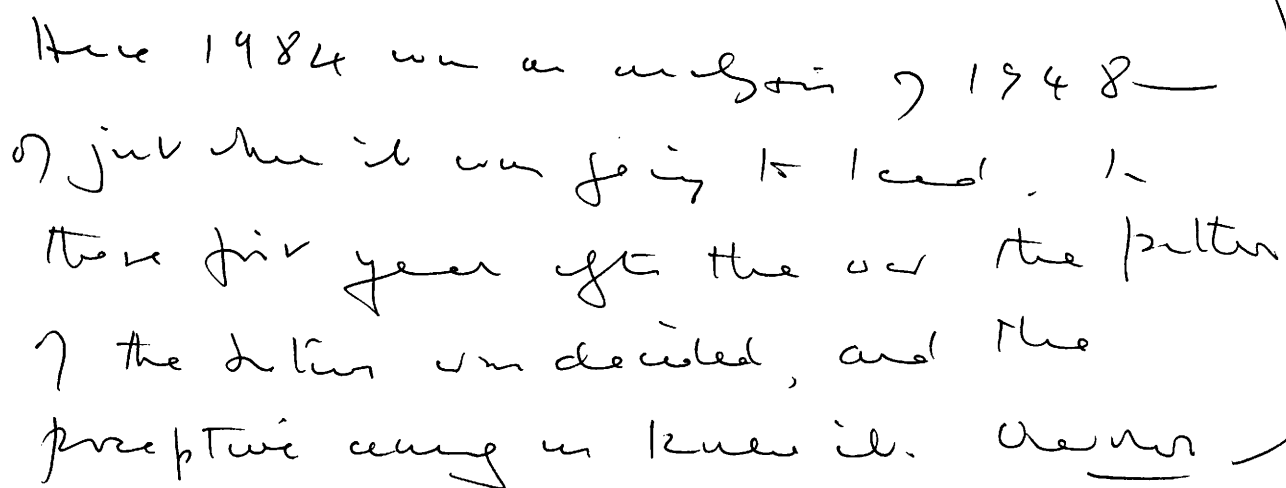 Hence 1984 was an analysis of 1948 —
of just where it was going to lead. In
those first years after the war the pattern
of the future was decided, and the
perceptive among us knew it.